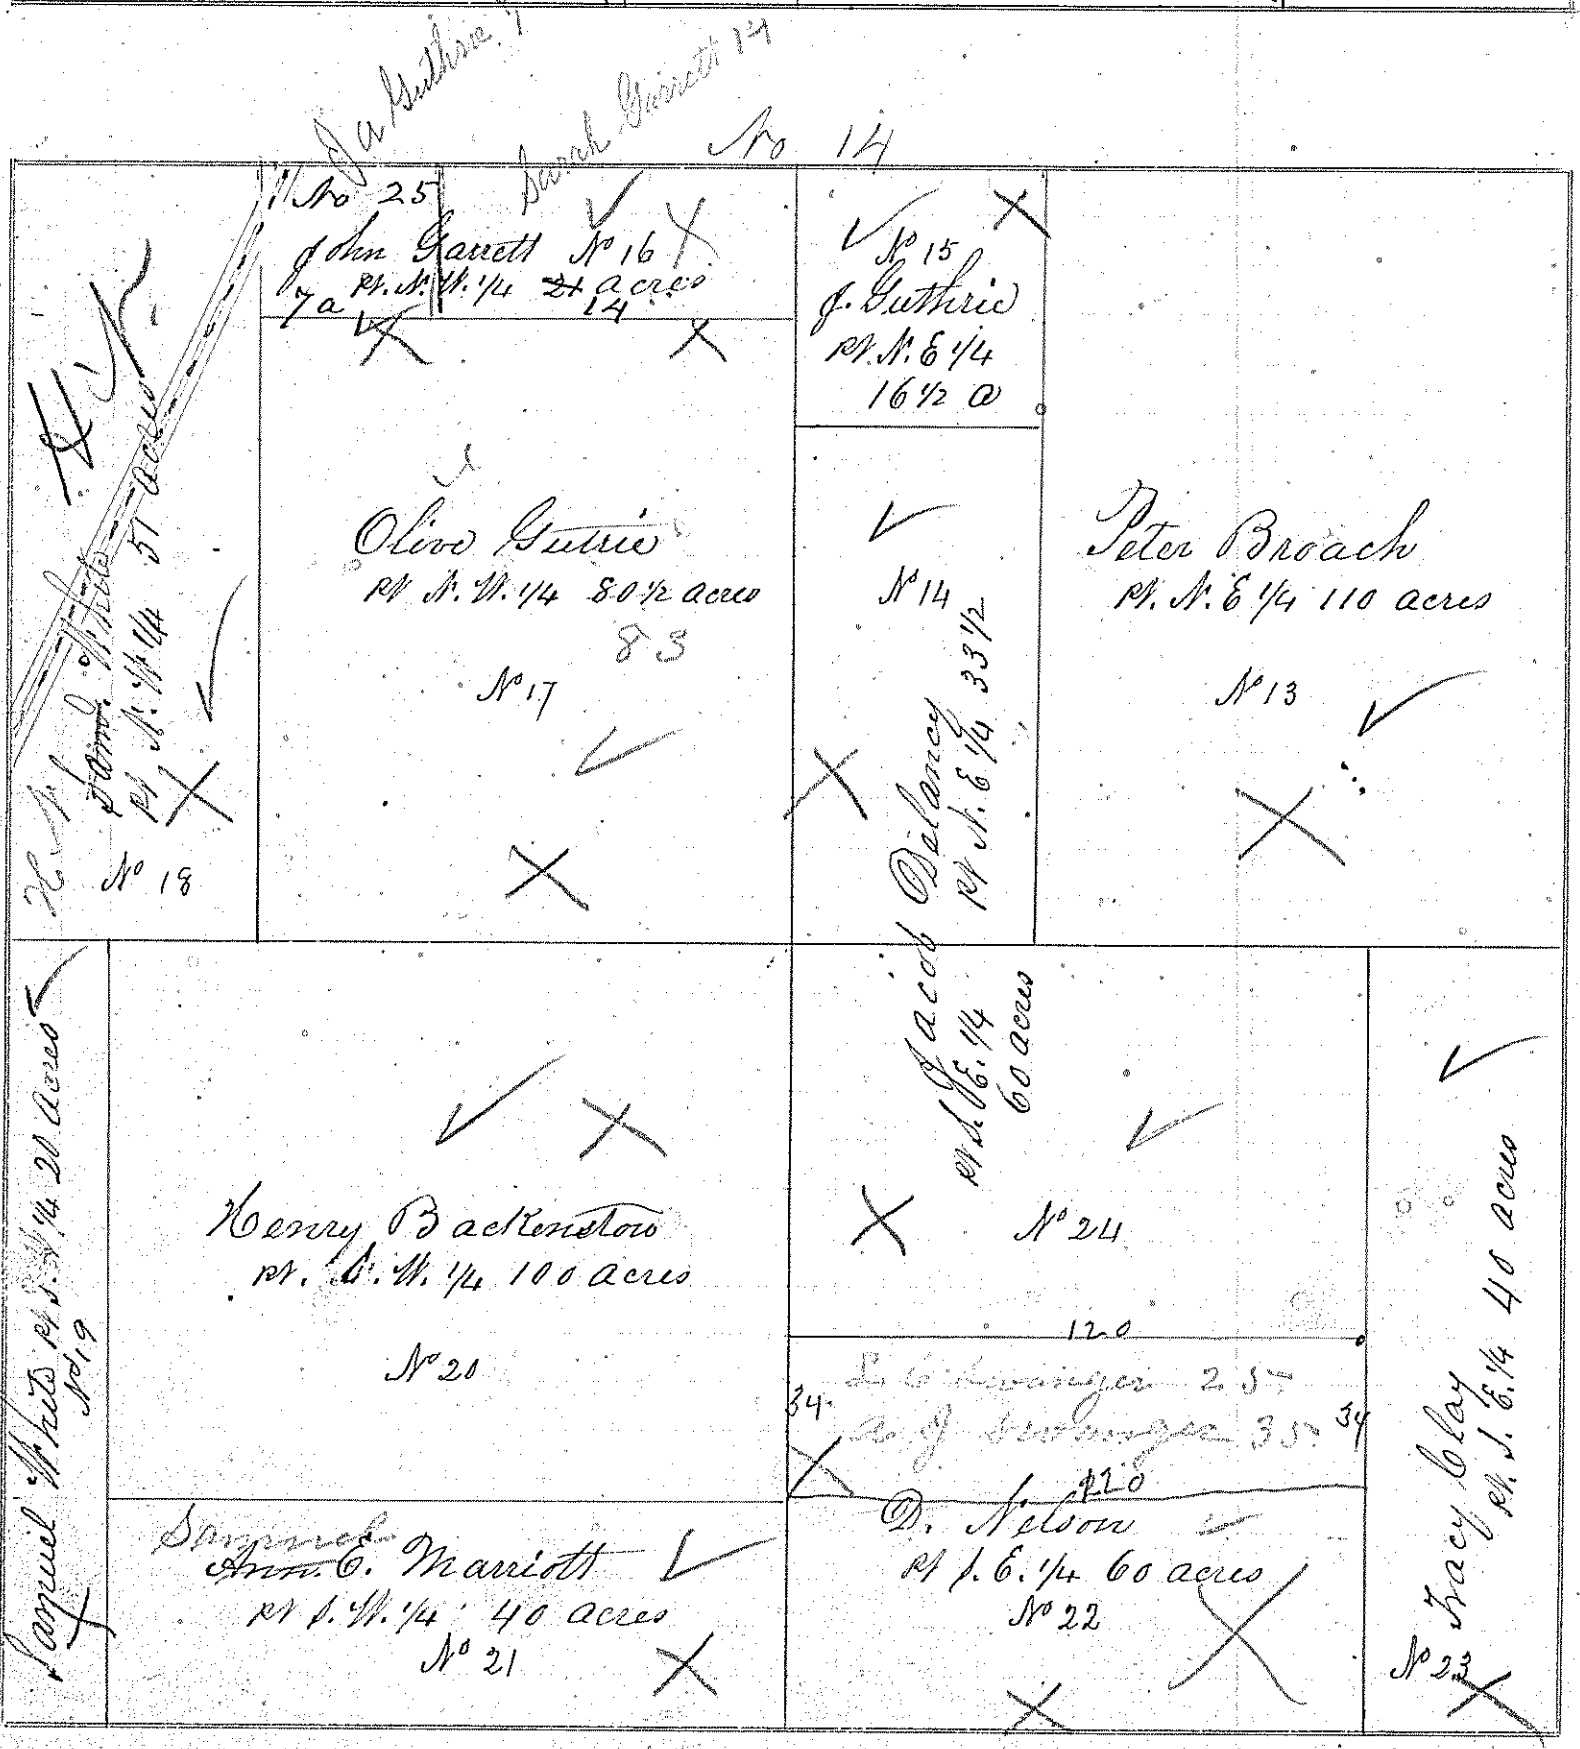 Ja Guthrie 7
Sarah Garrett 14
No 14
No 25
John Garrett No 16
Pt. N. W. 1/4 21 acres
7 a 14
No 15
J. Guthrie
Pt. N. E 1/4
16 1/2 a
H. N.
Saml. White 51 acres
Pt N. W 1/4
H. N.
No 18
Olive Gutrie
Pt N. W. 1/4 80 1/2 acres
83
No 17
No 14
Jacob Delancy
Pt N. E 1/4 33 1/2
Pt S. E. 1/4
60 acres
No 24
Peter Broach
Pt. N. E 1/4 110 acres
No 13
Samuel White Pt S. W 1/4 20 Acres
No 19
Henry Backenstow
Pt. S. W. 1/4 100 acres
No 20
120
25
34
A J 35 34
120
Samuel
Ann E. Marriott
Pt S. W. 1/4 40 acres
No 21
D. Nelson
Pt S. E. 1/4 60 acres
No 22
Tracy Clay
Pt. S. E. 1/4 40 acres
No 23